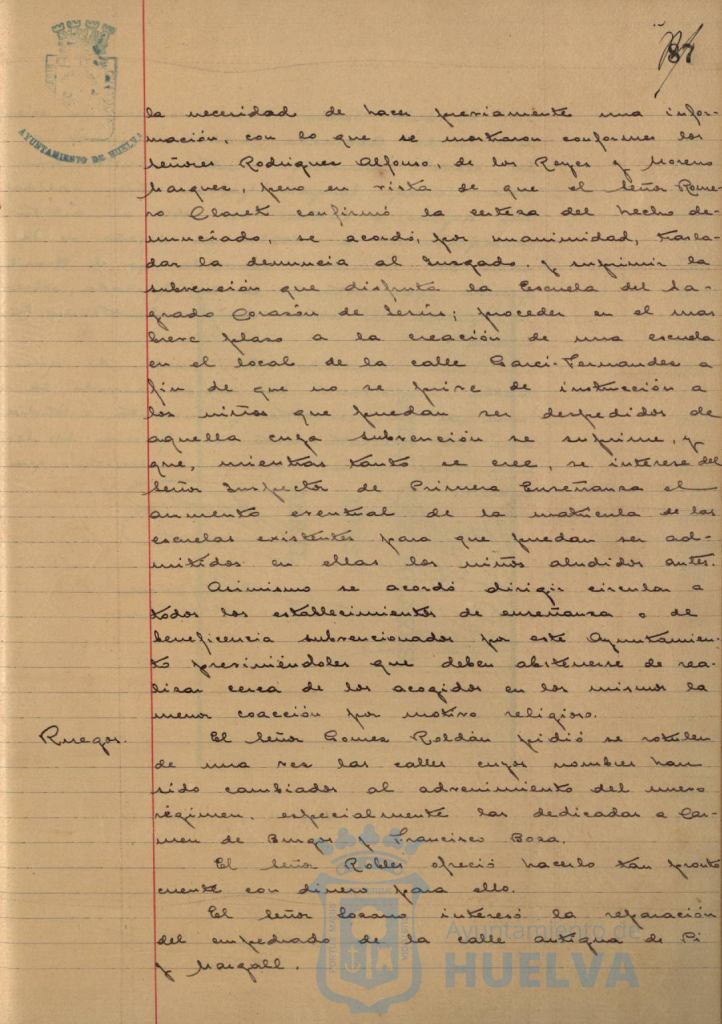 87
AYUNTAMIENTO DE HUELVA
la necesidad de hacer previamente una infor-
mación, con lo que se mostraron conformes los
señores Rodriguez Alfonso, de los Reyes y Moreno
Marquez, pero en vista de que el Señor Rome-
ro Claret confirmó la certeza del hecho de-
nunciado, se acordó, por unanimidad, trasla-
dar la denuncia al Juzgado y suprimir la
subvención que disfruta la Escuela del Sa-
grado Corazón de Jesús; proceder en el mas
breve plazo a la creación de una escuela
en el local de la calle Garci-Fernandez a
fin de que no se prive de instrucción a
los niños que puedan ser despedidos de
aquella cuya subvención se suprime, y
que, mientras tanto se cree, se interese del
Señor Inspector de Primera Enseñanza el
aumento eventual de la matrícula de las
escuelas existentes para que puedan ser ad-
mitidos en ellas los niños aludidos antes.
Asimismo se acordó dirigir circular a
todos los establecimientos de enseñanza o de
beneficencia subvencionados por este Ayuntamien-
to previniéndoles que deben abstenerse de rea-
lizar cerca de los acogidos en los mismos la
menor coacción por motivo religioso.
Ruegos.
El Señor Gomez Roldán pidió se rotulen
de una vez las calles cuyos nombres han
sido cambiados al advenimiento del nuevo
régimen, especialmente las dedicadas a Car-
men de Burgos y Francisco Boza.
El Señor Robles ofreció hacerlo tan pronto
cuente con dinero para ello.
El Señor Lozano interesó la reparación
del empedrado de la calle antigua de Pi
y Margall.
Ayuntamiento de
HUELVA